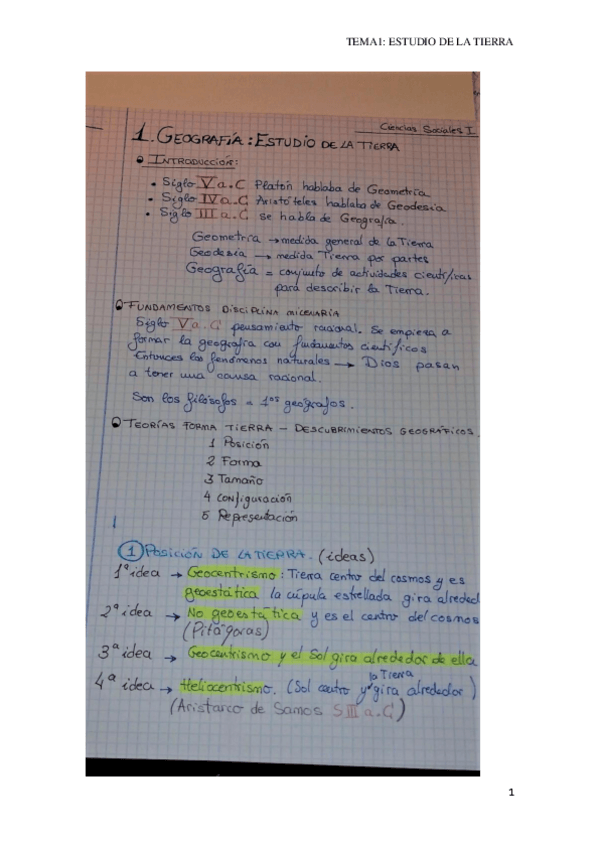 TEMA1: ESTUDIO DE LA TIERRA
Ciencias Sociales I
1. GEOGRAFÍA: ESTUDIO DE LA TIERRA
INTRODUCCIÓN:
• Siglo V a.C Platón hablaba de Geometría
• Siglo IV a.C Aristóteles hablaba de Geodesia
• Siglo III a.C se habla de Geografía.
Geometría → medida general de la Tierra
Geodesia → medida Tierra por partes
Geografía = conjunto de actividades científicas
para describir la Tierra.
FUNDAMENTOS DISCIPLINA MILENARIA
Siglo V a.C pensamiento racional. Se empieza a
formar la geografía con fundamentos científicos
Entonces los fenómenos naturales → Dios pasan
a tener una causa racional.
Son los filósofos = 1os geógrafos.
TEORÍAS FORMA TIERRA - DESCUBRIMIENTOS GEOGRÁFICOS.
1 Posición
2 Forma
3 Tamaño
4 Configuración
5 Representación
1 POSICIÓN DE LA TIERRA. (ideas)
1ª idea → Geocentrismo: Tierra centro del cosmos y es
geoestática la cúpula estrellada gira alreded
2ª idea → No geoestática y es el centro del cosmos
(Pitágoras)
3ª idea → Geocentrismo y el Sol gira alrededor de ella
la Tierra
4ª idea → Heliocentrismo. (Sol centro y gira alrededor)
(Aristarco de Samos S III a.C)
1